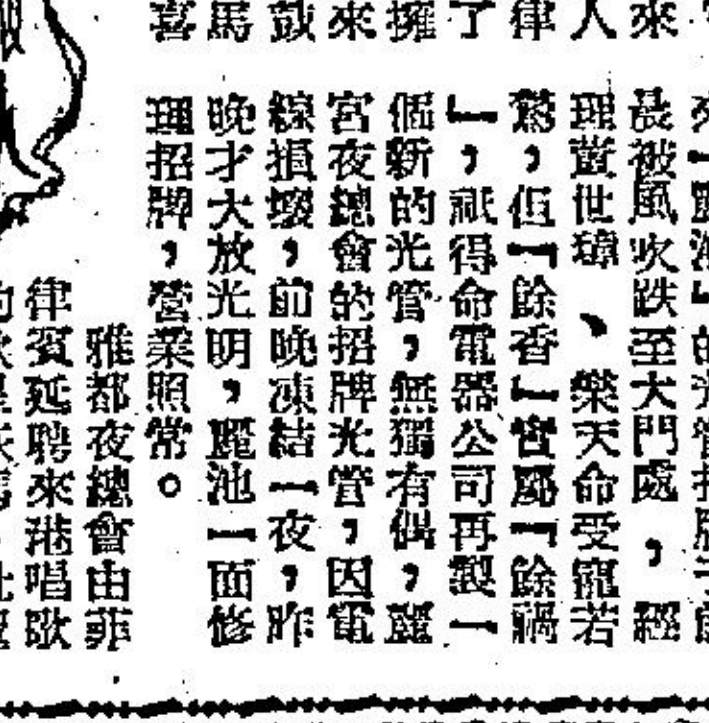 來
人
律
了
擁
來
鼓
馬
喜
晨被風吹跌至大門處，經
理董世瑋、樂天命受寵若
驚，但「餘香」實屬「餘禍
」，祇得命電器公司再製一
個新的光管，無獨有偶，麗
宮夜總會的招牌光管，因電
線損壞，前晚凍結一夜，昨
晚才大放光明，麗池一面修
理招牌，營業照常。
雅都夜總會由菲
律賓延聘來港唱歌